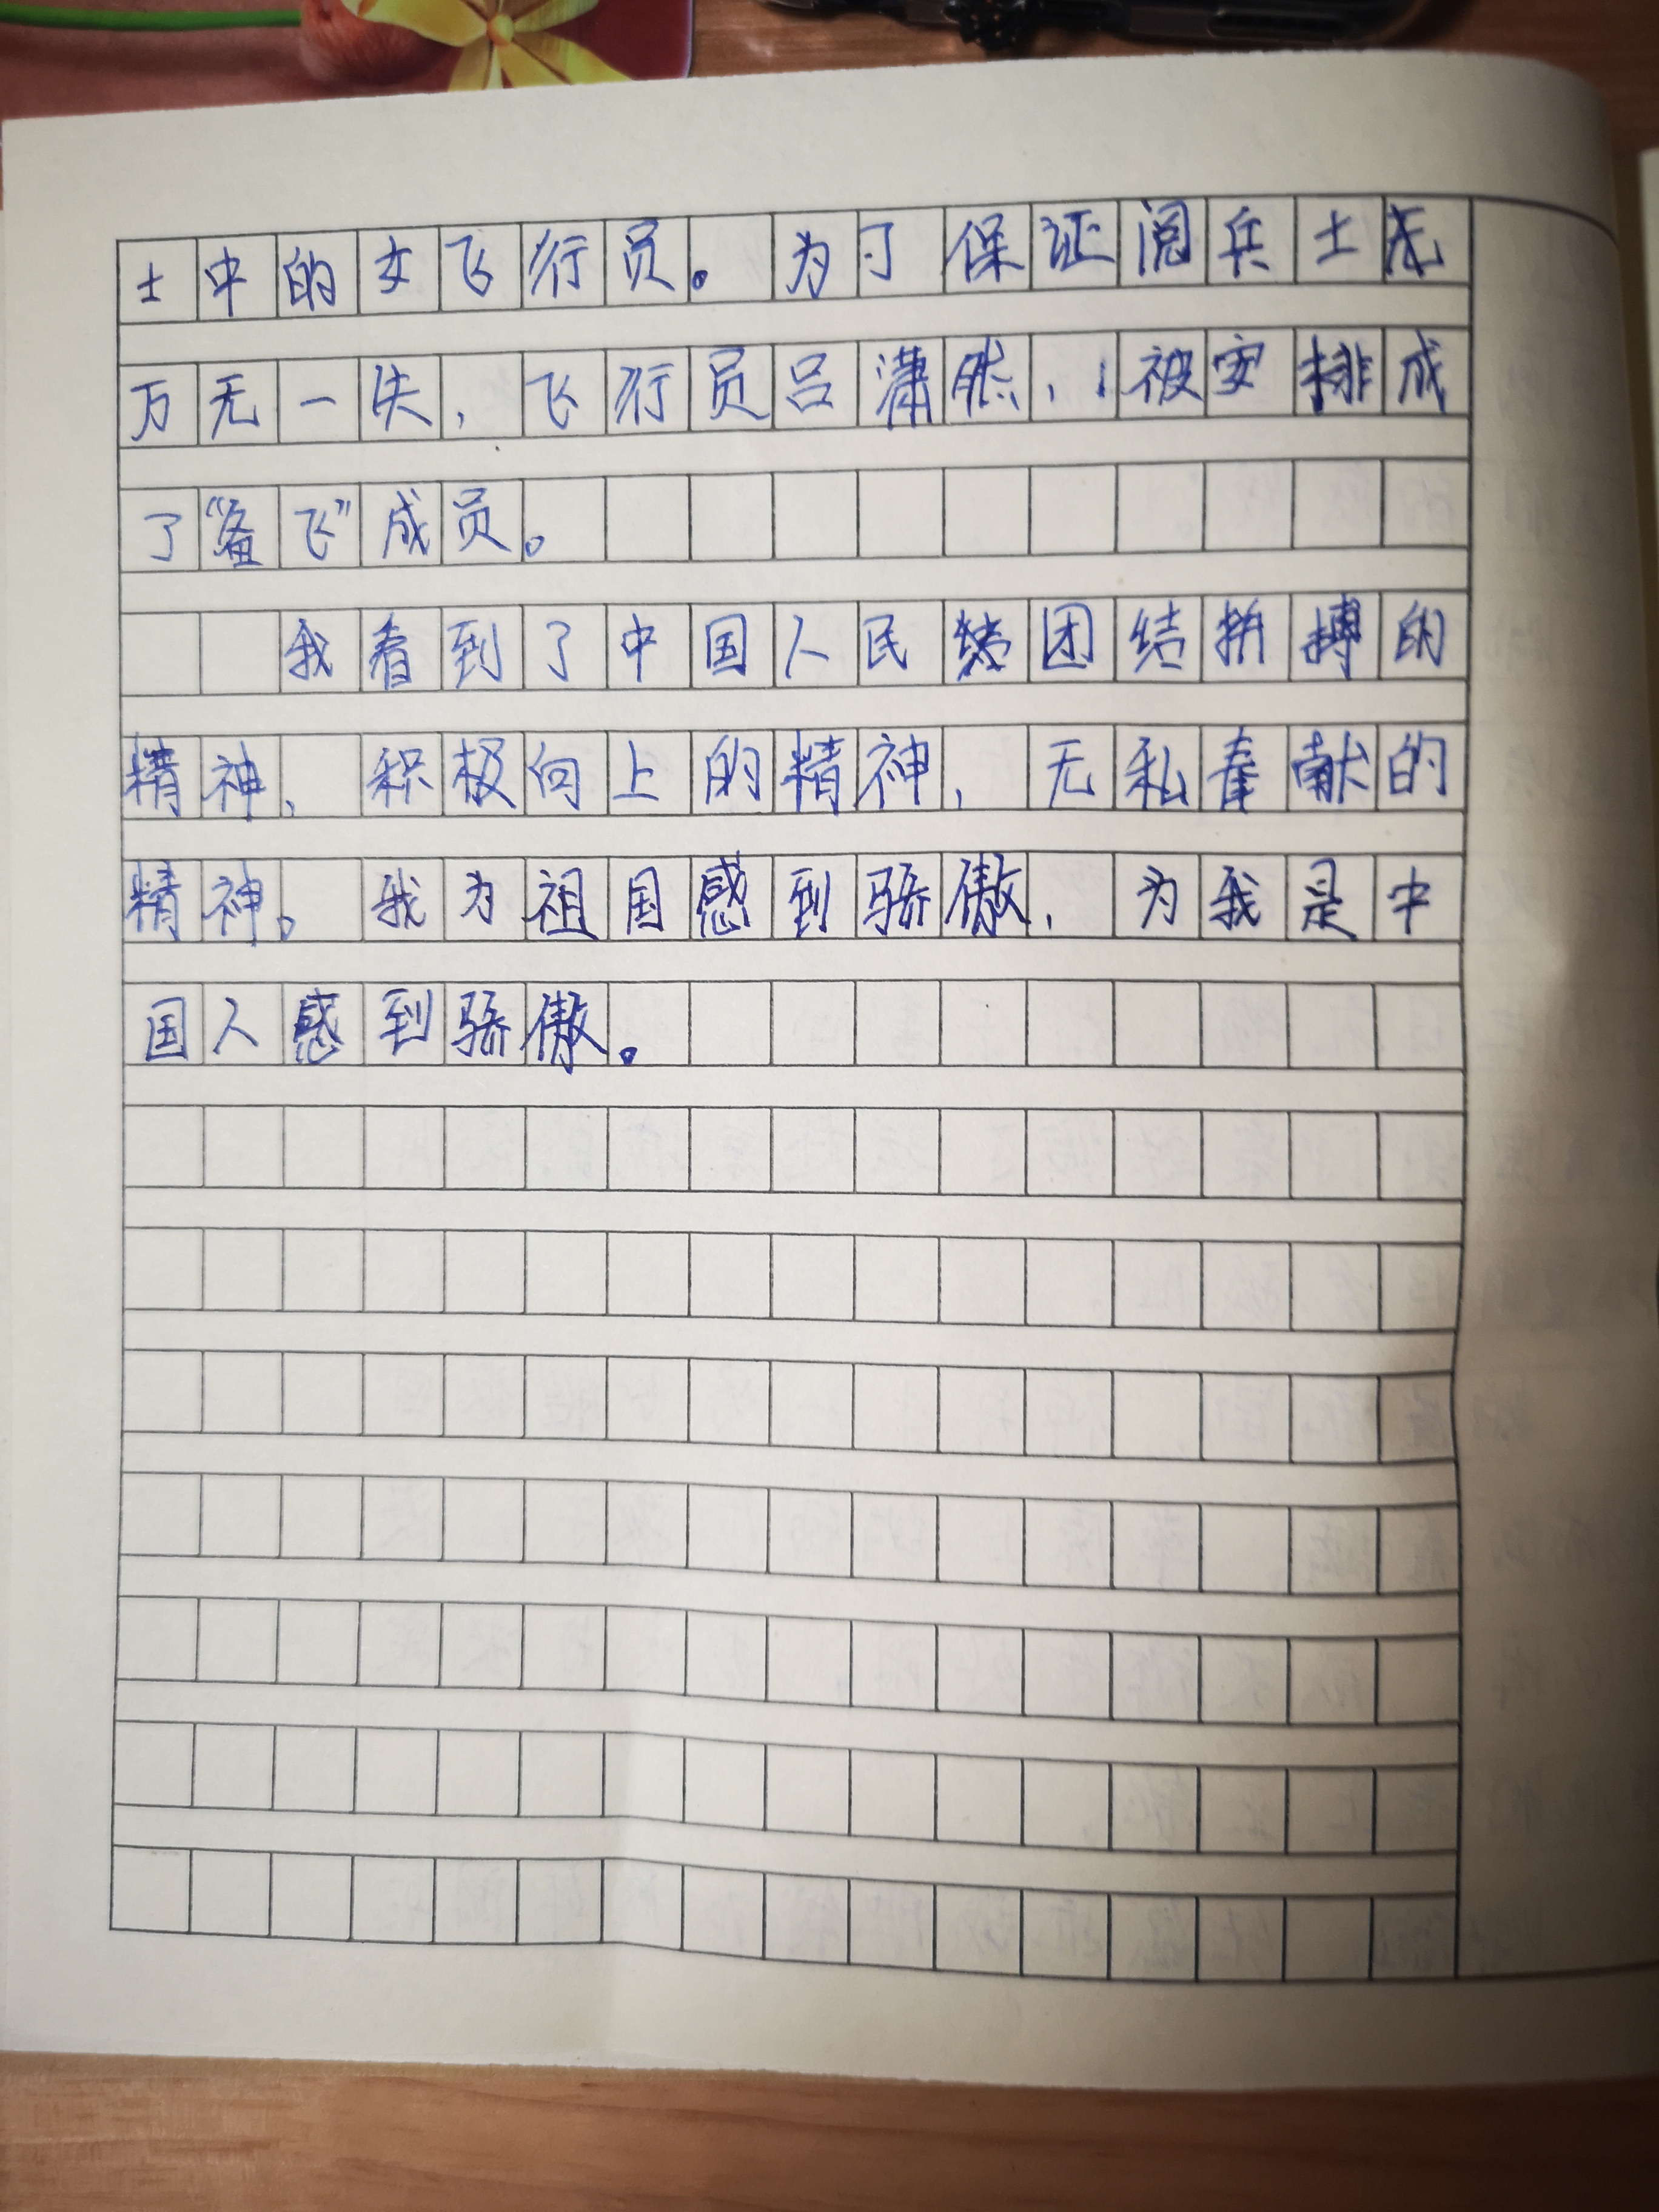 士中的女飞行员。为了保证阅兵士无
万无一失,飞行员吕潇然,被安排成
了“备飞”成员。
我看到了中国人民团结拼搏的
精神,积极向上的精神,无私奉献的
精神。我为祖国感到骄傲,为我是中
国人感到骄傲。